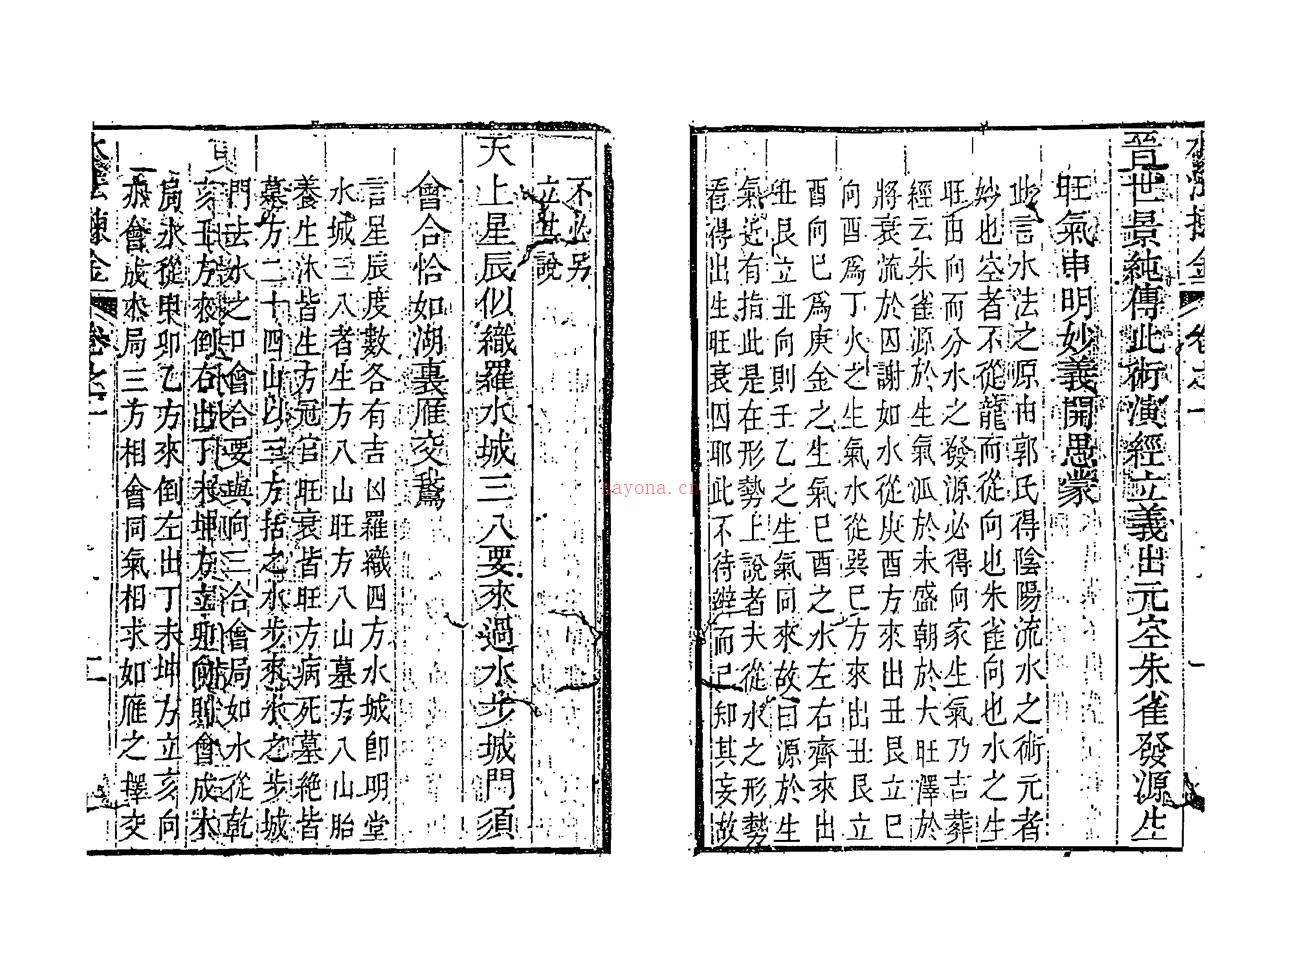 晉世景純傳此術演經立義出元空朱雀發源生
旺氣申明妙義開愚蒙
此言水法之原由郭氏得陰陽流水之術元者
妙也空者不從龍而從向也朱雀向也水之生
旺由向而分水之發源必得向家生氣乃吉葬
經云朱雀源於生氣派於未盛朝於大旺澤於
將衰流於囚謝如水從庚酉方來出丑艮立巳
向酉爲丁火之生氣水從巽巳方來出丑艮立
酉向巳爲庚金之生氣巳酉之水左右齊來出
丑艮立丑向則壬乙之生氣同來故曰源於生
氣近有指此是在形勢上說者夫從水之形勢
看得出生旺衰囚耶此不待辨而已知其妄故
不必另
立其說
天上星辰似織羅水城三八要來過水步城門須
會合恰如湖裏雁交鵞
言星辰度數各有吉凶羅織四方水城即明堂
水城三八者生方八山旺方八山墓方八山胎
養生沐皆生方冠官旺衰皆旺方病死墓絶皆
墓方二十四山以三方括之水步來水之步城
門去水之口會合要與向三合會局如水從乾
亥壬方來倒右出丁未坤方立卯向則會成木
局水從甲卯乙方來倒左出丁未坤方立亥向
亦會成木局三方相會同氣相求如雁之擇交
nayona.cn